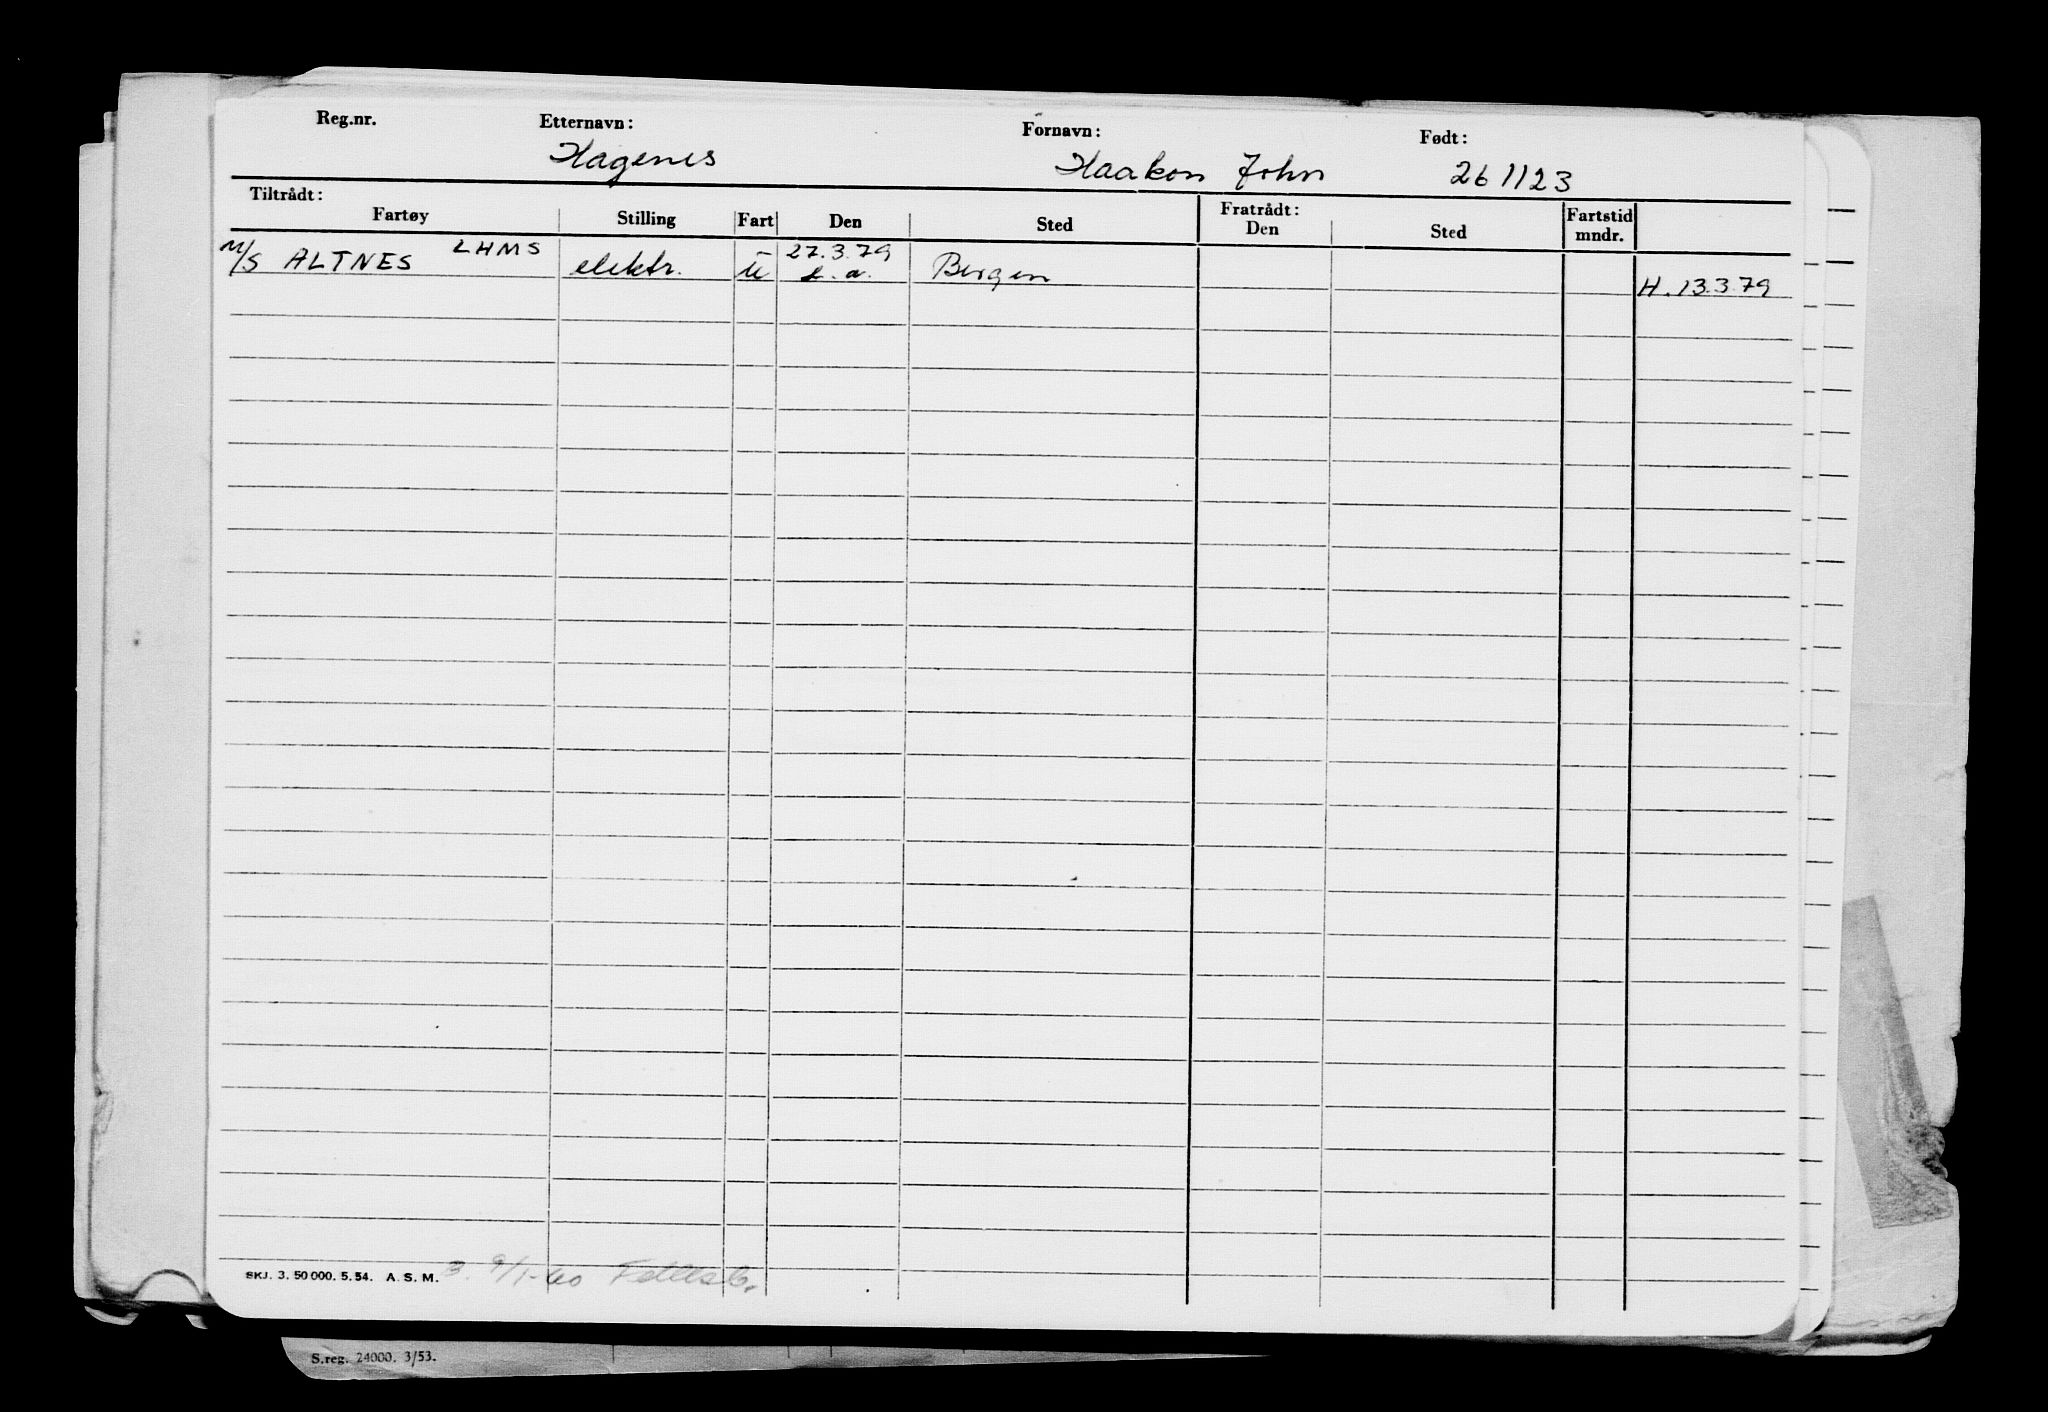 Reg.nr. Etternavn: Fornavn: Født:
Hagenes Haakon John 261123
Tiltrådt: Fratrådt:
Fartøy Stilling Fart Den Sted Den Sted Fartstid mndr.
M/S ALTNES LHMS elektr. u 27.3.79 Bergen H. 13.3.79
SKJ. 3. 50 000. 5. 54. A. S. M. 3. 9/1-60
S.reg. 24000. 3/53.